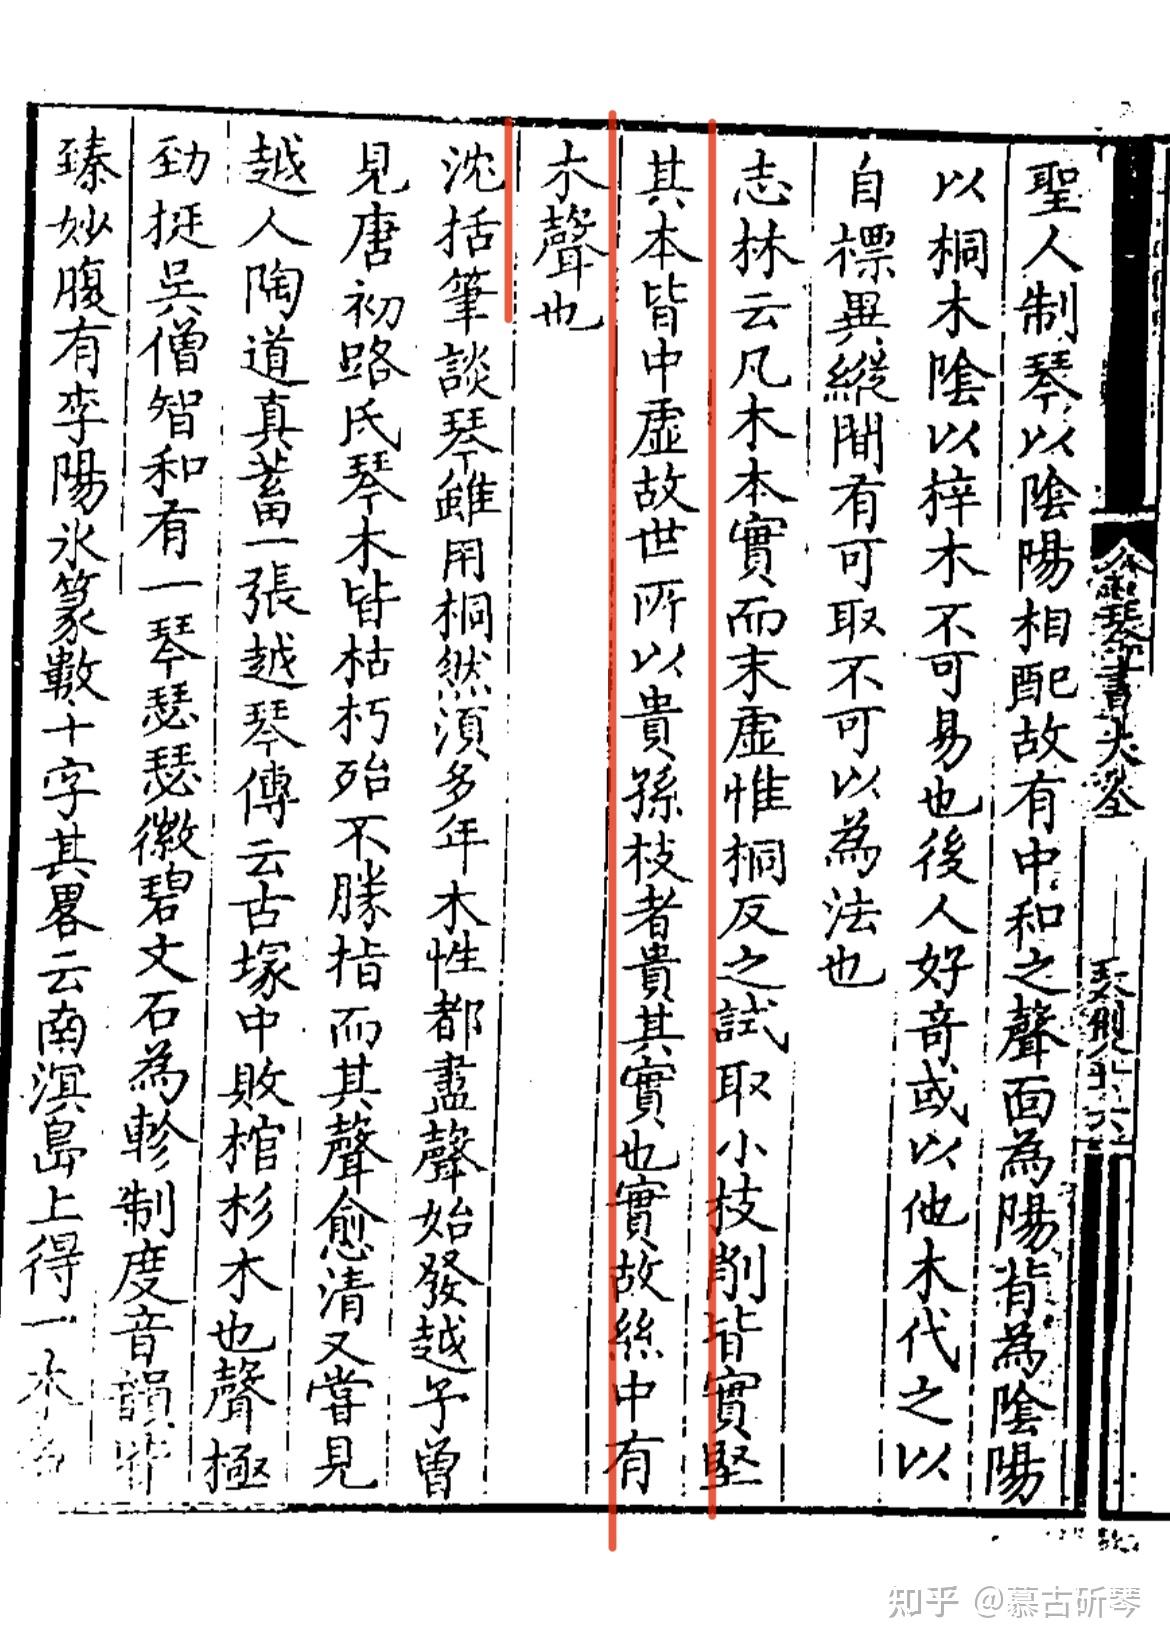 聖人制琴以隂陽相配故有中和之聲面為陽背為隂陽
以桐木隂以梓木不可易也後人好竒或以他木代之以
自標異縱間有可取不可以為法也
志林云凡木本實而末虛惟桐反之試取小枝削皆實堅
其本皆中虛故世所以貴孫枝者貴其實也實故絲中有
木聲也
沈括筆談琴雖用桐然湏多年木性都盡聲始發越予曾
見唐初路氏琴木皆枯朽殆不勝指而其聲愈清又甞見
越人陶道真蓄一張越琴傳云古塚中敗棺杉木也聲極
勁挺吳僧智和有一琴瑟瑟徽碧文石為軫制度音韻皆
臻妙腹有李陽氷篆數十字其畧云南溟島上得一木
琴書大全
知乎 @慕古斫琴